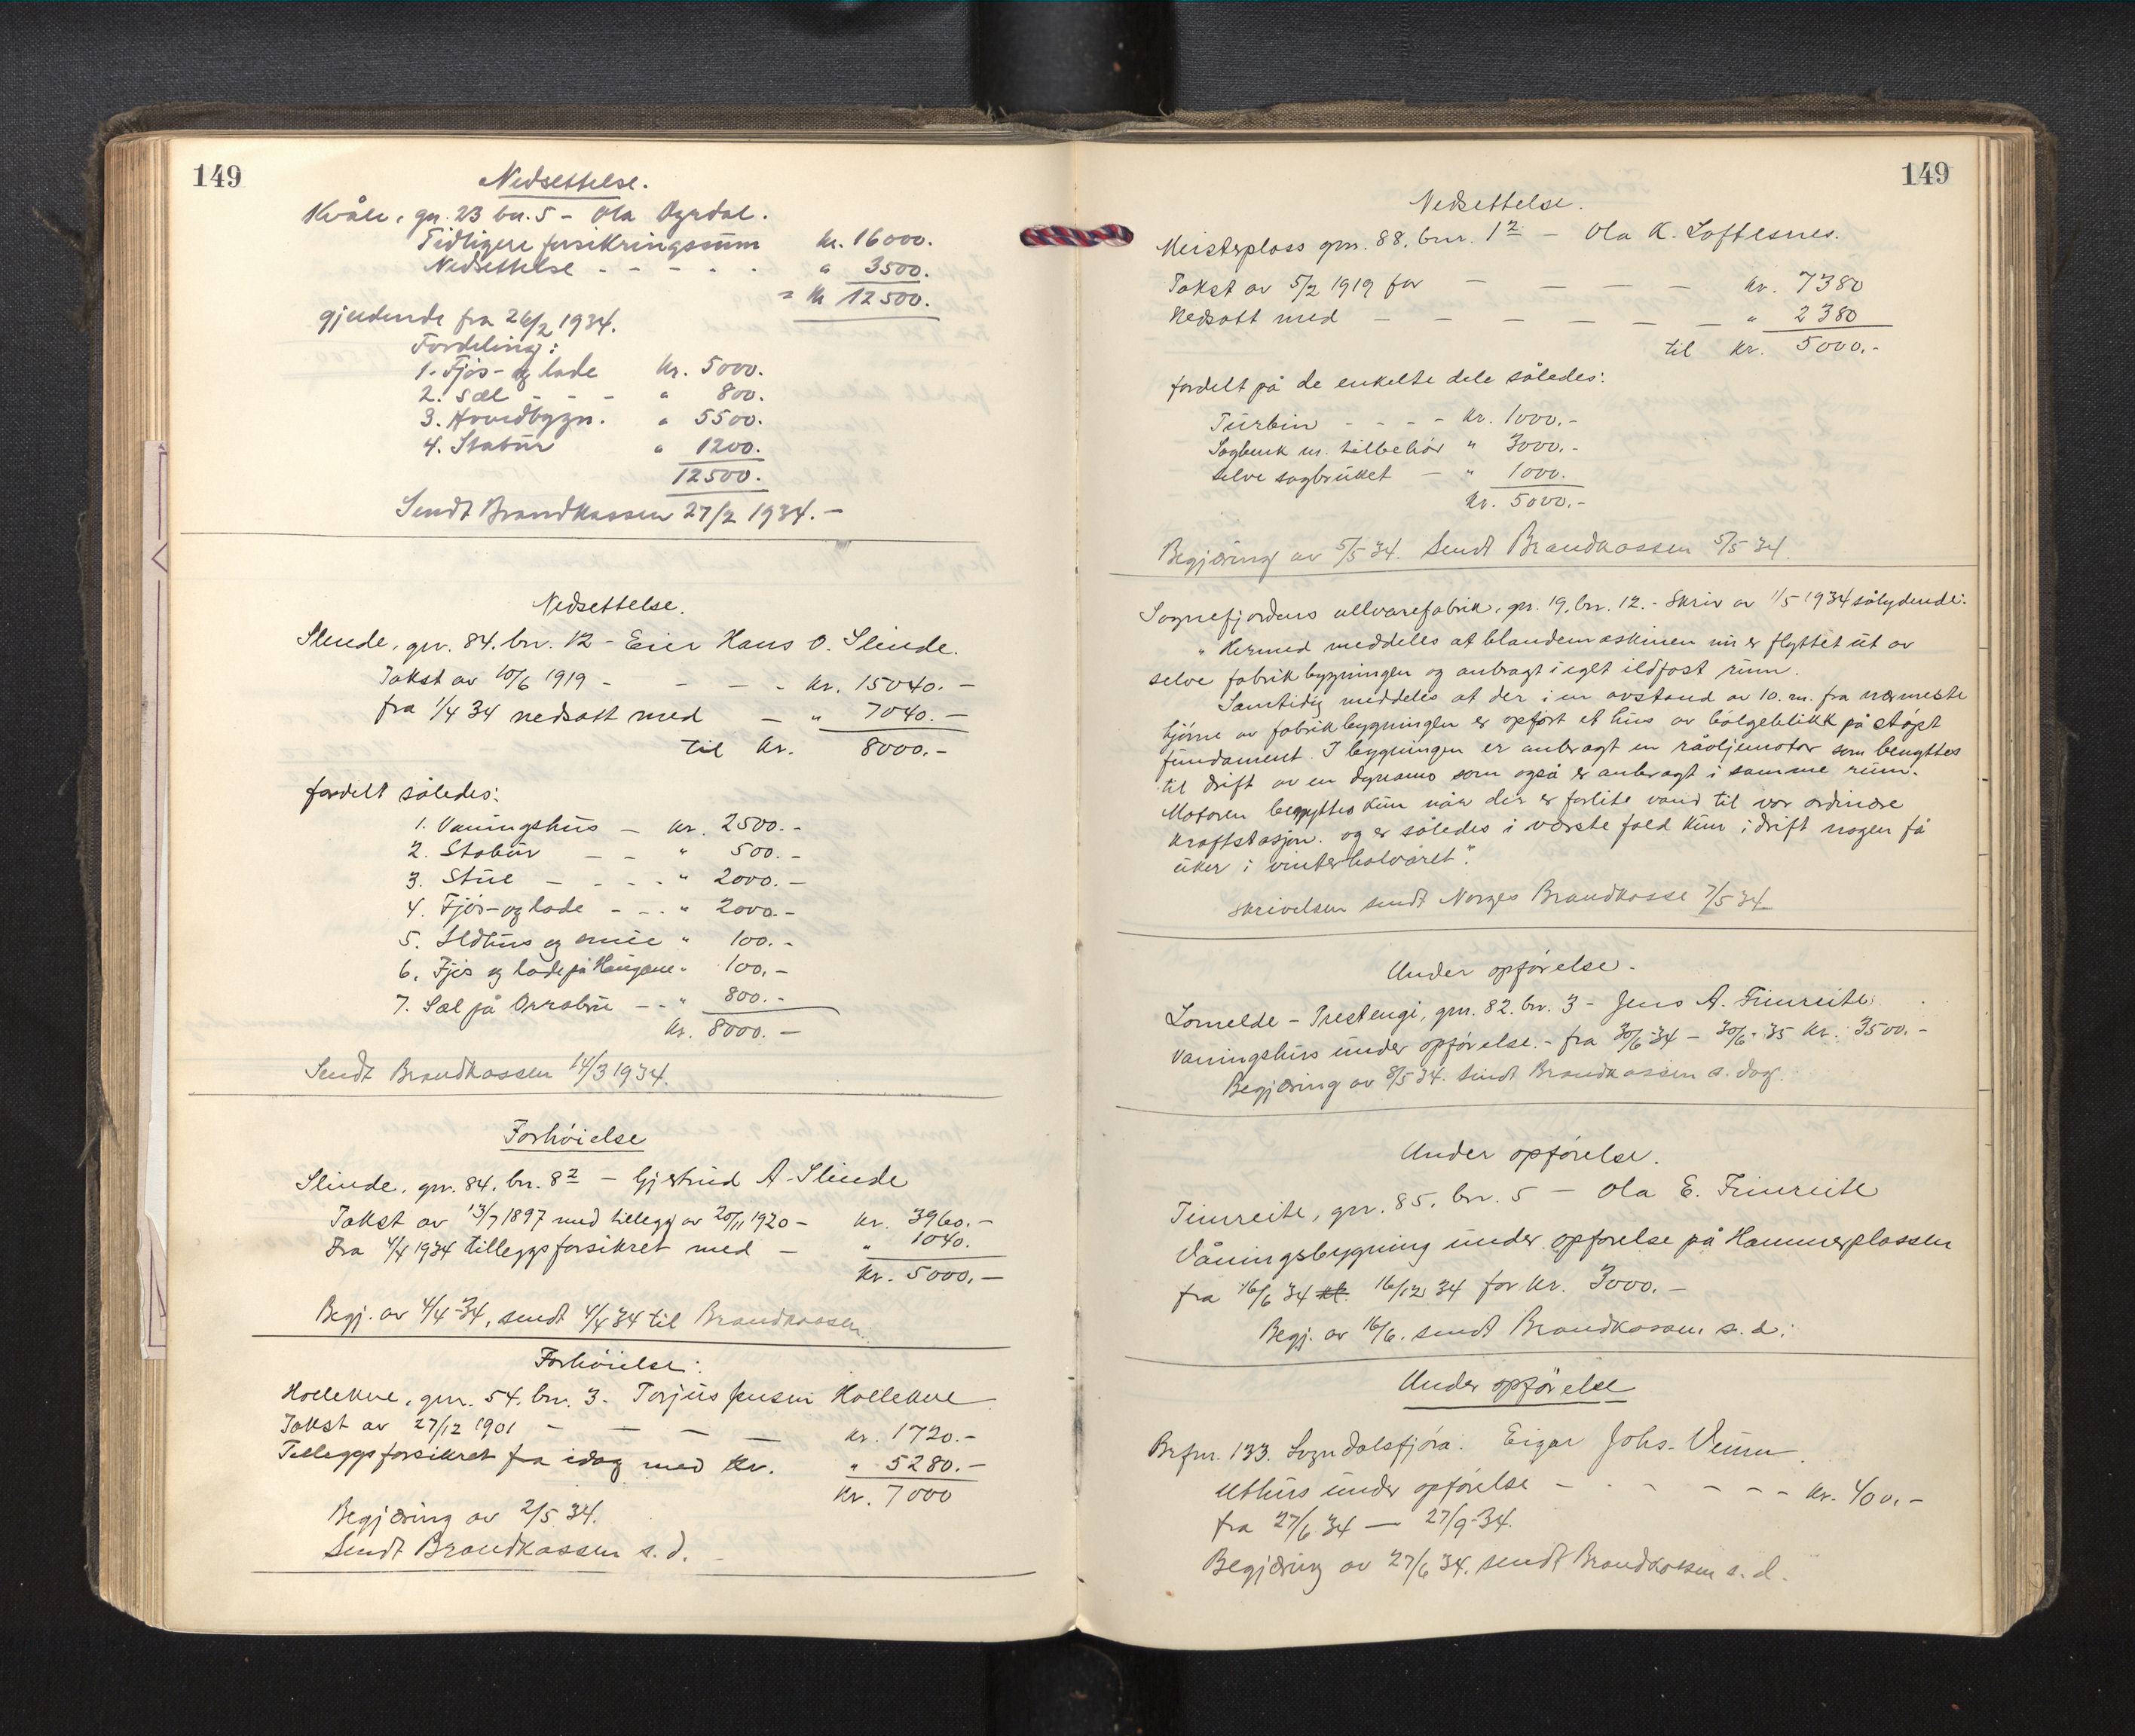 149
Nedsettelse.
Kvåle, gn. 23 bn. 5 - Ola Øgrdal.
Tidligere forsikringssum kr. 16000.
Nedsettelse - - - - - " 3500.
= kr 12500.
gjeldende fra 26/2 1934.
Fordeling:
1. Fjøs- og lade kr. 5000.
2. Sæl - - - " 800.
3. Hovedbygn. " 5500.
4. Stabur " 1200.
12500.
Sendt Brandkassen 27/2 1934. -
Nedsettelse.
Slinde, gnr. 84. bnr. 12 - Eier Hans O. Slinde.
Takst av 10/6 1919 - - - - kr. 15040. -
fra 1/4 34 nedsatt med - " 7040. -
til kr. 8000. -
fordelt således:
1. Vaningshus - kr. 2500. -
2. Stabur - - " 500. -
3. Stue - - - - " 2000. -
4. Fjøs- og lade - - - " 2000. -
5. Ildhus og smie " 100. -
6. Fjøs og lade på Haugane " 100. -
7. Sæl på - - " 800. -
kr. 8000. -
Sendt Brandkassen 14/3 1934.
Forhöielse
Slinde, gnr. 84. bnr. 8² - Gjertrud A. Slinde
Takst av 13/7 1897 med tillegg av 20/11 1920 - kr. 3960. -
Fra 4/4 1934 tilleggsforsikret med - " 1040.
kr. 5000. -
Begj. av 4/4-34, sendt 4/4 34 til Brandkassen.
Forhöielse:
Hollekve, gnr. 54. bnr. 3. Torjus Jensen Hollekve
Takst av 27/12 1901 - - - - kr. 1720. -
Tilleggsforsikret fra idag med kr. " 5280. -
kr. 7000
Begjæring av 2/5 34.
Sendt Brandkassen s. d. -
149
Nedsettelse.
Meisterplass gnr. 88. bnr. 1² - Ola K. Loftesnes.
Takst av 5/2 1919 for - - - - kr. 7380
Nedsatt med - - - - - - " 2380
til kr. 5000. -
fordelt på de enkelte dele således:
Turbin - - - - kr. 1000. -
Sagbenk m. tilbehör " 3000. -
selve sagbruket - " 1000.
kr. 5000. -
Begjæring av 5/5 34. Sendt Brandkassen 5/5 34.
Sognefjordens ullvarefabrik, gnr. 19, bnr. 12. - Skriv av 1/5 1934 sålydende:
" Hermed meddeles at blandemaskinen nu er flyttet ut av
selve fabrikbygningen og anbragt i eget ildfast rum.
Samtidig meddeles at der i en avstand av 10. m. fra nærmeste
hjörne av fabrikbygningen er opfört et hus av bölgeblikk på stöpt
fundament. I bygningen er anbragt en råoljemotor som benyttes
til drift av en dynamo som også er anbragt i samme rum.
Motoren benyttes kun når der er forlite vand til vor ordinære
kraftstasjon. og er således i værste fald kun i drift nogen få
uker i vinterhalvåret".
Skrivelsen sendt Norges Brandkasse 7/5 34
Under opförelse.
Lomelde - Prestengi, gnr. 82. bnr. 3 - Jens A. Fimreite.
Vaningshus under opförelse. - fra 30/6-34 - 30/6-35 kr. 3500. -
Begjæring av 8/5 34. Sendt Brandkassen s. dag.
Under opförelse.
Fimreite, gnr. 85. bnr. 5 - Ola E. Fimreite
Våningsbygning under opförelse på Hammerplassen
fra 16/6 34 16/12 34 for kr. 3000. -
Begj. av 16/6. sendt Brandkassen s. d.
Under opförelse
Brfnr. 133. Sogndalsfjöra. Eigar Johs.
Uthus under opförelse - - - - - - kr. 400. -
fra 27/6 34 - 27/9-34.
Begjæring av 27/6 34. sendt Brandkassen s. d.